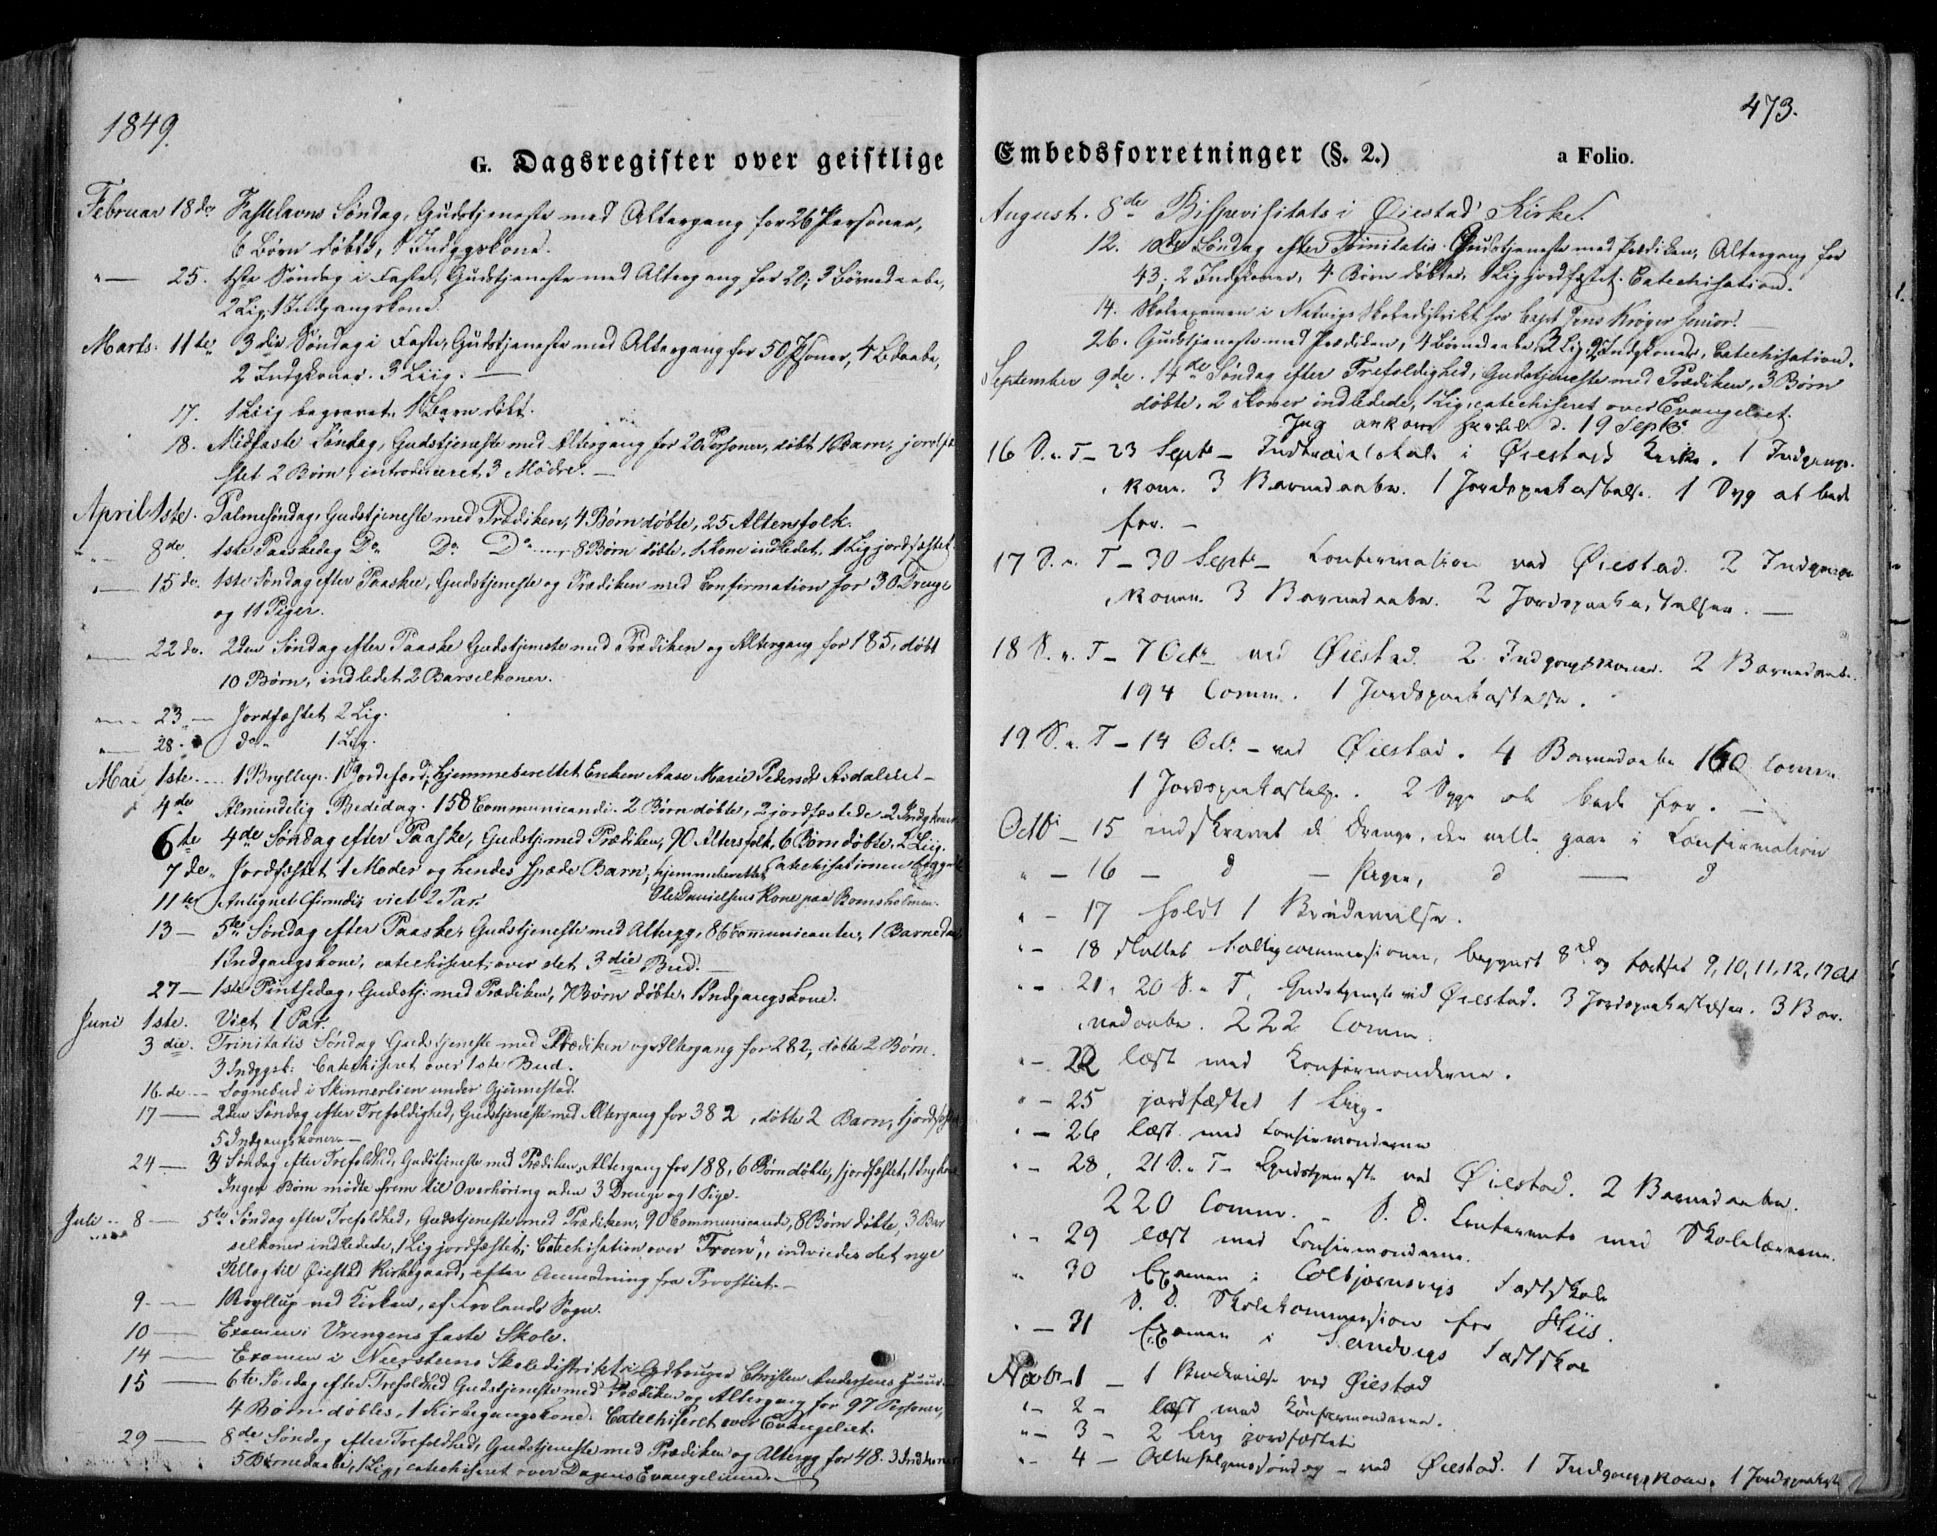 1849.
G. Dagsregister over geistlige
Februar 18de Fastelavns Søndag, Gudstjeneste med Altergang for 26 Personer,
6 Børn døbte, 1 Indggskone.
"— 25. 1ste Søndag i Faste, Gudstjeneste med Altergang for 20; 3 Børnedaabe,
2 Lig, 1 Indgangskone.
Marts. 11te 3die Søndag i Faste, Gudstjeneste med Altergang for 50 Psoner, 4 Bdaabe,
2 Indgkoner. 3 Liig. —
17. 1 Liig begravet, 1 Barn døbt.
18. Midfaste Søndag, Gudstjeneste med Altergang for 20 Personer, døbt 1 Barn, jordfæ-
stet 2 Børn, introduceret 3 Mødre. —
April 1ste. Palmesøndag, Gudstjeneste med Prædiken, 4 Børn døbte, 25 Altersfolk.
" — 8de 1ste Paaskedag Do Do Do — 8 Børn døbte, 1 Kone indledet, 1 Lig jordfæstet.
" — 15de. 1ste Søndag efter Paaske, Gudstjeneste og Prædiken med Confirmation for 30 Drenge
og 11 Piger.
— 22de. 2den Søndag efter Paaske Gudstjeneste med Prædiken og Altergang for 185, døbt
10 Børn, indledet 2 Barselkoner.
" — 23 — Jordfæstet 2 Lig.
" — 28. do. 1 Lig.
Mai 1ste. — 1 Bryllup. 1 Jordefærd, hjemmeberettet Enken Aase Marie Pedersdt
4de Almindelig Bededag. 158 Communicand. 2 Børn døbte, 2 jordfæstede 2 Indgkoner
6te 4de Søndag efter Paaske, Gudstj. med Prædiken, 90 Altersfolk, 6 Børn døbte, 2 Lig.
7de. Jordfæstet 1 Moder og hendes spæde Barn, hjemmeberettet Catechisationen begyndt
Ole Danielsens Kone paa Bomsholmen.
11te viet 2 Par.
13 — 5te Søndag efter Paaske, Gudstjeneste med Altergg, 86 Communicanter, 1 Barnedaab
1 Indgangskone, catechiseret over det 3die Bud. —
27 — 1ste Pintsedag, Gudstj. med Prædiken, 7 Børn døbte, 1 Indgangskone.
Juni 1ste. Viet 1 Par.
3die. Trinitatis Søndag Gudstjeneste med Prædiken og Altergang for 282, døbte 2 Børn.
3 Indggsk. Catechiseret over 1ste Bud.
16.de — Sognebud i Skinnerlien under Gjennestad.
17 — 2den Søndag efter Trefoldighed, Gudstjeneste med Altergang for 382, døbte 2 Barn, 1 jordfæstet
5 Indgangskoner. —
24 — 3 Søndag efter Trefoldhed, Gudstjeneste med Prædiken, Altergang for 188, 6 Børn døbte, 1 jordfæstet, 1 Ingkone
Ingen Børn mødte frem til Overhøring uden 3 Drenge og 1 Pige.
Juli — 8 — 5te Søndag efter Trefoldhed, Gudstjeneste med Prædiken, 90 Communicande, 8 Børn døbte, 3 Bar
selkoner indledede, 1 Lig jordfæstet, Catechisation over "Troen", indviedes det nye
Tillæg til Øiestad Kirkegaard, efter Anmodning fra Provstiet. —
9. — 1 Bryllup ved Kirken, af Frolands Sogn.
10 — Examen i Vrengens faste Skole.
14 — Examen i Neersteens Skoledistrikt Christen Andersens
15 — 6te Søndag efter Trefoldhed Gudstjeneste med Prædiken og Altergang for 97 Personer,
4 Børn døbtes, 1 Kirkegangskone. Catechiseret over Evangeliet.
29 — 8de Søndag efter Trefoldhed, Gudstjeneste med Prædiken og Altergg for 48. 3 Indkoner
5 Børnedaabe, 1 Lig, catechiseret over Dagens Evangelium. —
473.
Embedsforretninger (§. 2.) a Folio.
August. 8de Bispevisitats i Øiestad Kirke.
12. 10de Søndag efter Trinitatis. Gudstjeneste med Prædiken, Altergang for
43; 2 Indgkoner, 4 Børn døbte, 1 Lig jordfæstet. Catechisation.
14. Skoleexamen i Nedvigs Skoledistrikt hos Capt Jens Krøger senior. —
26. Gudstjeneste med Prædiken, 4 Børnedaabe, 3 Lig, 2 Indgkoner, Catechisation.
September 9de. 14de Søndag efter Trefoldighed, Gudstjeneste med Prædiken, 3 Børn
døbte, 2 Koner indledede, 1 Lig, catechiseret over Evangeliet.
Jeg ankom hertil d. 19 Septbr
16 S. e. T — 23 Septr — i Øiestads Kirke. 1 Indgangs-
kone. 3 Barnedaabe. 1 Jordspaakastelse. 1 Syg at bede
for. —
17 S. e. T — 30 Septr — Confirmation ved Øiestad. 2 Indgangs
koner. 3 Barnedaabe. 2 Jordspaakastelser. —
18 S. e. T — 7 Octr — ved Øiestad. 2 Indgangskoner. 2 Barnedaabe.
194 Comm. 1 Jordspaakastelse.
19 S. e. T — 14 Octr — ved Øiestad. 4 Barnedaabe 160 Comm.
1 Jordspaakastelse. 2 Syge at bede for. —
Octbr — 15 indskrevet de Drenge, der ville gaae i Confirmation
" — 16 — d — Pigen, d — d
" — 17 holdt 1 Brudevielse.
" — 18 sluttet Fattigcommissionen, begyndt 8de og fortsat 9, 10, 11, 12, 17 Oct
" — 21, 20 S. e. T. Gudstjeneste ved Øiestad. 3 Jordspaakastelser. 3 Bar-
nedaabe. 222 Comm.
" — 22 læst med Konfirmanderne.
" — 25 jordfæstet 1 Liig.
" — 26 læst med Confirmanderne
" — 28, 21 S. e. T — Gudstjeneste ved Øiestad. 2 Barnedaabe.
220 Comm. — S. D. Conference med Skolelærerne.
" — 29 læst med Confirmanderne.
" 30 Examen i Colbjørnsvigs Fastskole
S. D. Skolekommission for Hiis.
" — 31 Examen i Sandvigs Fastskole
Novbr — 1 — 1 Brudevielse ved Øiestad
" — 2 — læst med Konfirmanderne.
" — 3 — 2 Liig jordfæstet
" — 4 — Allehelgenssøndag — ved Øiestad. 1 Indgangskone. 1 Jordspaakast